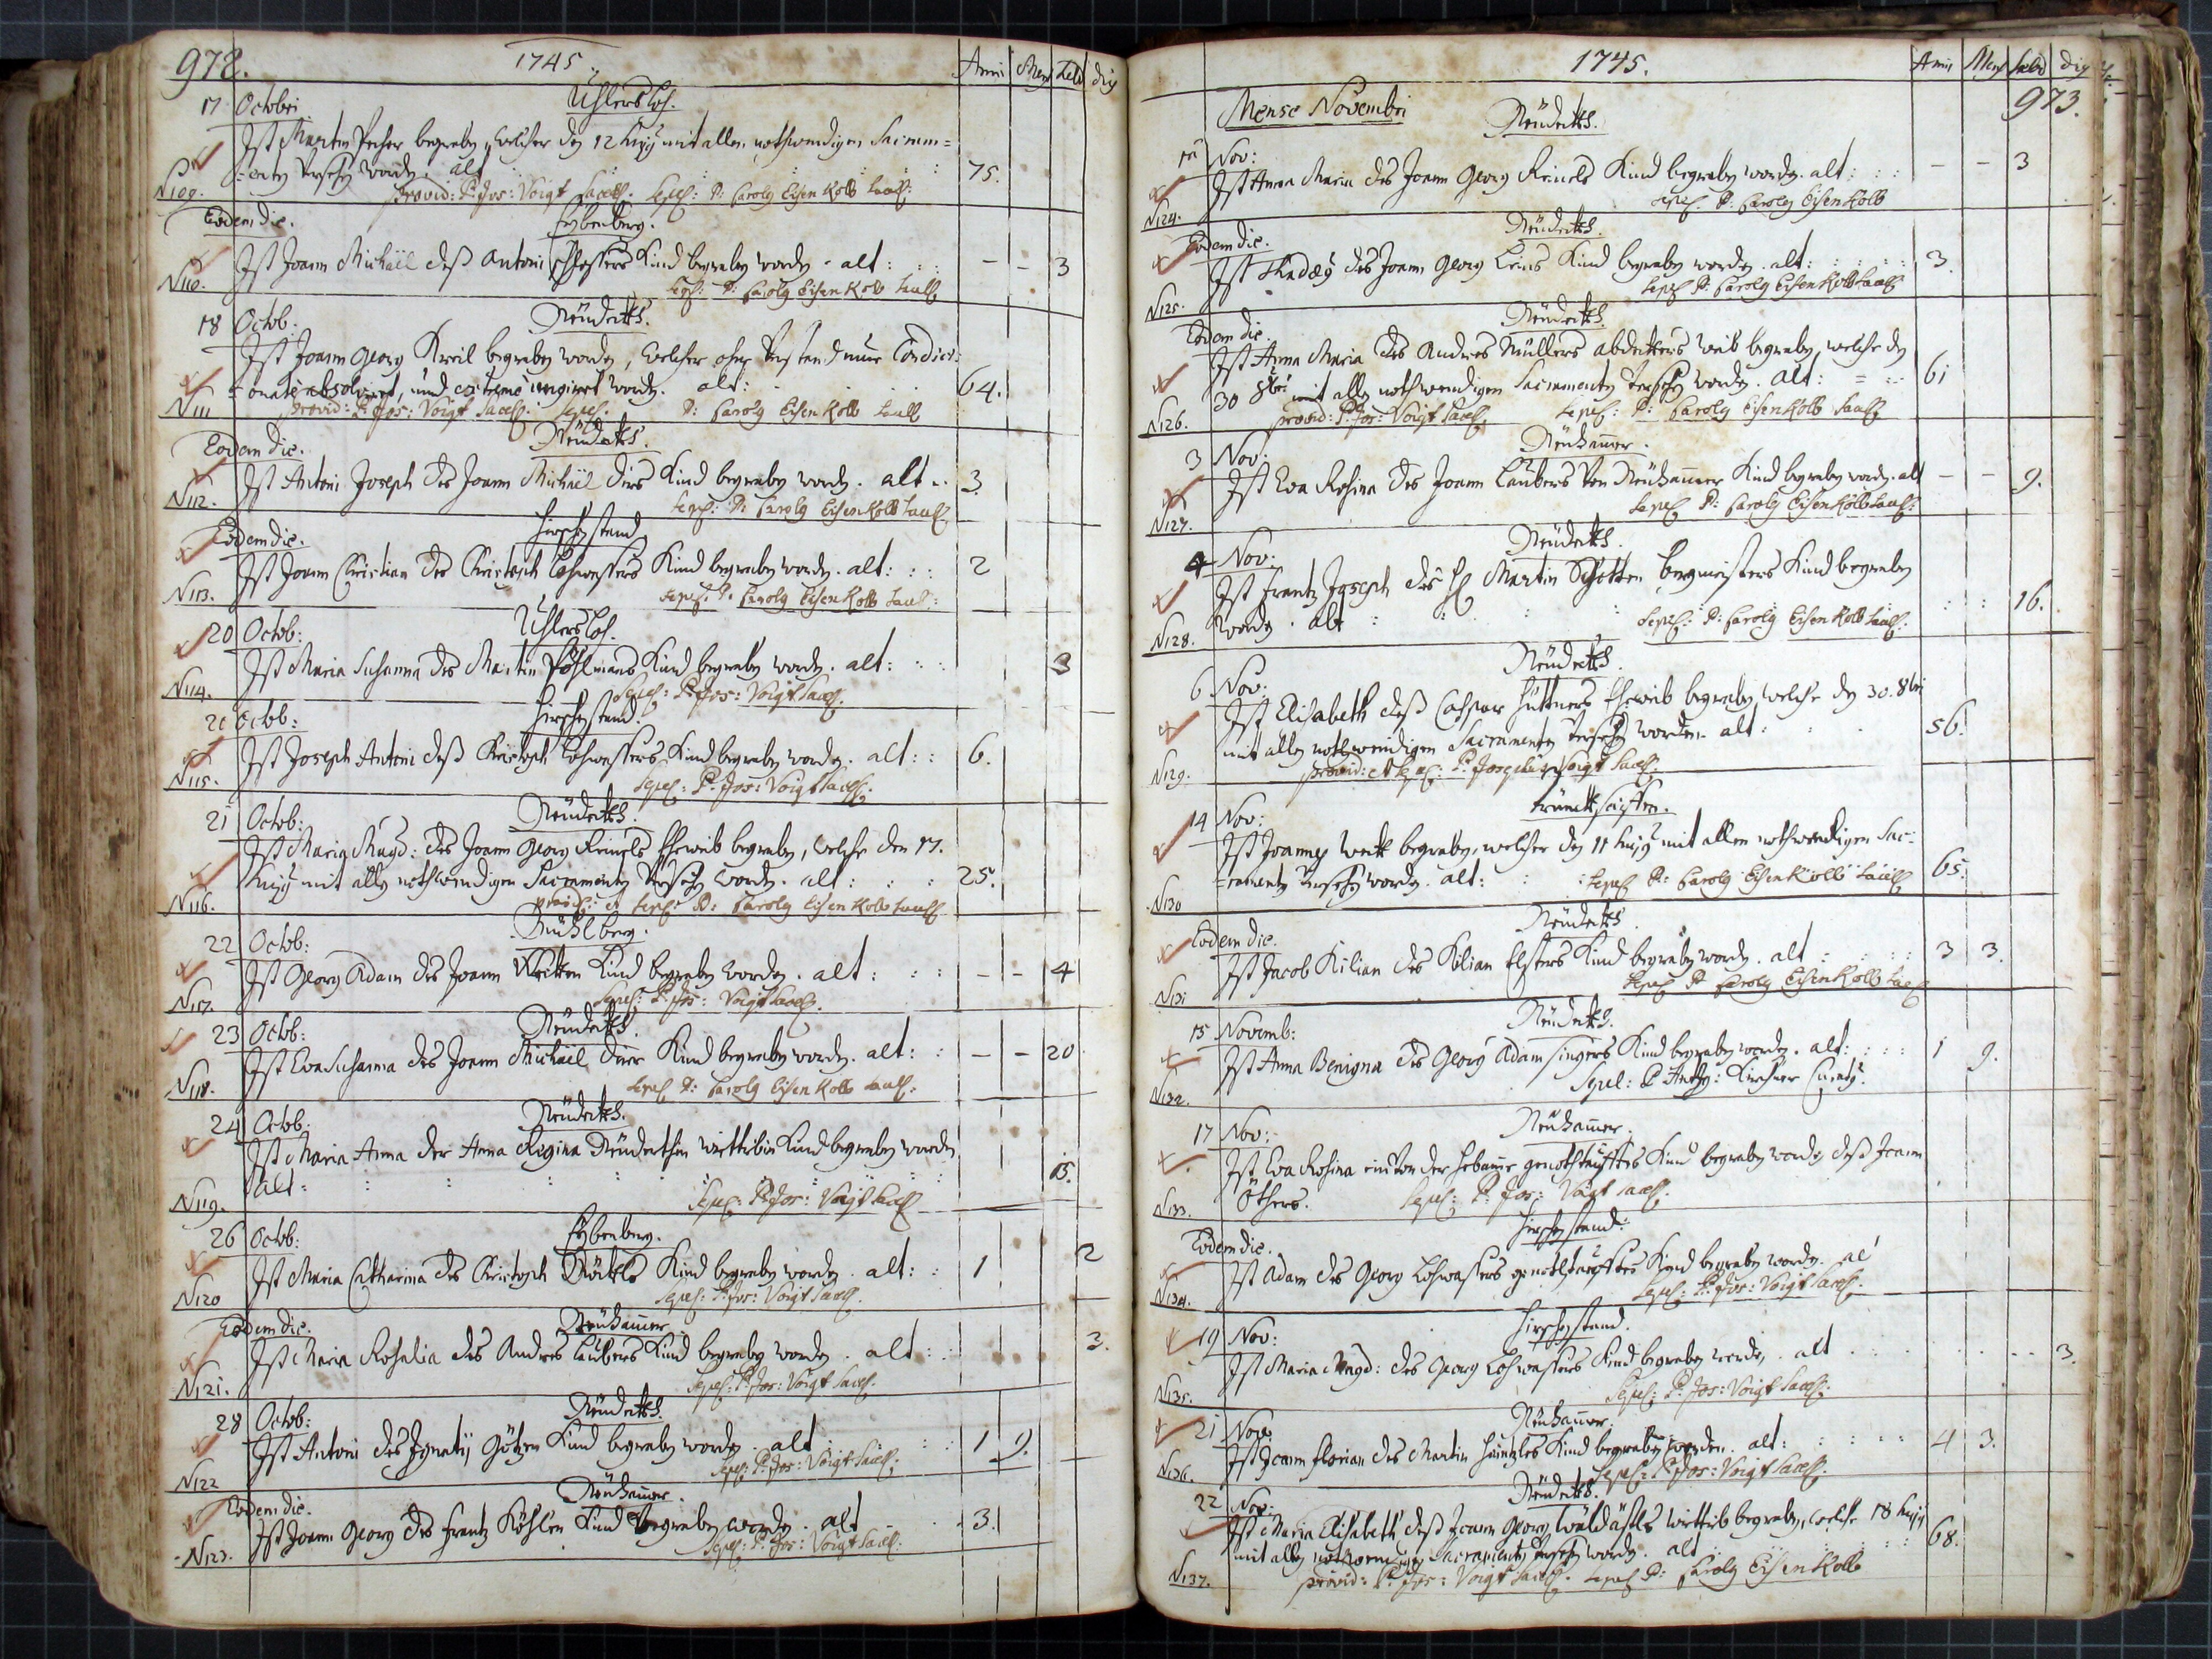 972.
1745.
Anni Mens Hebd dies
17 Octobri Ühlersloh.
Ist Martin begraben, welcher den 12 hujus mit allen nothwendigen Sacram=
=enten versehen worden. alt : 75.
N109. provid: P: Jos: Voigt Sacell. Sepel: P: Carolus Eisenkolb Sacell:
Eodem die. Eybenberg.
Ist Joann Michäel deß Antoni Schlossers Kind begraben worden. alt : : : – – 3
N110. Sepel: P: Carolus Eisenkolb Sacell
18 Octob: Neüdeckh.
Ist Joann Georg Kreil begraben worden, welcher ohne Verstand nur Condici=
=onate absolviret, und extreme ungiret worden. alt : 64.
N111 provid: P: Jos: Voigt Sacell. Sepel. P: Carolus Eisenkolb Sacell
Eodem die. Neüdeckh.
N112. Ist Antoni Joseph des Joann Michäel Diers Kind begraben worden. alt : 3.
Sepel: P: Carolus Eisenkolb Sacell
Eodem die. Hirschenstand
Ist Joann Christian des Christoph Lohwassers Kind begraben worden. alt : : : 2
N113. Sepel. P. Carolus Eisenkolb Sacell:
20 Octob: Ühlersloh.
Ist Maria Susanna des Martin Pöhlmans Kind begraben worden. alt : : : 3
N114. Sepel: P: Jos: Voigt Sacell.
20 Octob: Hirschenstand.
Ist Joseph Antoni deß Christoph Lohwassers Kind begraben worden. alt : : 6.
N115. Sepel: P: Jos: Voigt Sacell.
21 Octob: Neüdeckh.
Ist Maria Magd: des Joann Georg Reinels Eheweib begraben, welche den 17.
hujus mit allen nothwendigen Sacramenten versehen worden. alt : : : 25.
N116. provid: et Sepel: P: Carolus Eisenkolb Sacell
22 Octob: Mühlberg.
Ist Georg Adam des Joann Kind begraben worden. alt : : : – – 4
N117. Sepel: P: Jos: Voigt Sacell.
23 Octob: Neüdeckh.
Ist Eva Susanna des Joann Michäel Dier Kind begraben worden. alt : : – – 20
N118. Sepel P: Carolus Eisenkolb Sacell:
24 Octob: Neüdeckh.
Ist Maria Anna der Anna Regina wittibin Kind begraben worden
alt : : : : : 15.
N119. Sepel: P: Jos: Voigt Sacell
26 Octob: Eybenberg.
Ist Maria Catharina des Christoph Kind begraben worden. alt : : 1 2
N120 Sepel: P: Jos: Voigt Sacell.
Eodem die. Neühammer
Ist Maria Rosalia des Andres Laubers Kind begraben worden. alt : : 3.
N121. Sepel: P: Jos: Voigt Sacell.
28 Octob: Neüdeckh.
Ist Antoni des Ignatij Götzen Kind begraben worden. alt : : 1 9.
N122 Sepel: P: Jos: Voigt Sacell.
Eodem die. Neühammer.
Ist Joann Georg des Frantz Köhlers Kind begraben worden. alt 3.
N123. Sepel: P: Jos: Voigt Sacell.
1745.
Anni Mens hebd dies
973.
Mense Novembri Neüdeckh.
1a Nov:
Ist Anna Maria des Joann Georg Reinels Kind begraben worden. alt : : : – – 3
N124. Sepel. P: Carolus Eisenkolb
Eodem die. Neüdeckh.
Ist Thadæus des Joann Georg Kind begraben worden. alt : : : 3.
N125. Sepel P: Carolus Eisenkolb Sacell
Eodem die Neüdeckh.
Ist Anna Maria des Andres Müllers abdeckers weib begraben, welche den
30 8bris mit allen nothwendigen Sacramenten versehen worden. alt : : 61
N126. provid: P: Jos: Voigt Sacell. Sepel: P: Carolus Eisenkolb Sacell
3 Nov: Neühammer.
Ist Eva Rosina des Joann Laubers von Neühammer Kind begraben worden. alt – – 9.
N127. Sepel P: Carolus Eisenkolb Sacell:
4 Nov: Neüdeckh.
Ist Frantz Joseph des H Martin Schotten bergmeisters Kind begraben
worden. alt : : : : 16.
N128. Sepel: P: Carolus Eisenkolb Sacell.
6 Nov: Neüdeckh
Ist Elisabeth deß Caspar Hüttners Eheweib begraben, welche den 30. 8bris
mit allen nothwendigen Sacramenten versehen worden. alt : : 56.
N129. provid: et Sepel: P: Josephus Voigt Sacell.
14 Nov: Trünckseiffen.
Ist Joannes begraben, welcher den 11 hujus mit allen nothwendigen Sac=
=ramenten versehen worden. alt : : Sepel P: Carolus Eisenkolb Sacell 65.
N130
Eodem die. Neüdeckh
Ist Jacob Kilian des Kilian Elsters Kind begraben worden. alt : : : 3 3.
N131 Sepel P Carolus Eisenkolb Sacell
15 Novemb: Neüdeckh.
Ist Anna Benigna des Georg Adam Singers Kind begraben worden. alt : : : 1 9.
N132. Sepel: P Antho: Kirchner Curatus.
17 Nov: Neühammer.
Ist Eva Rosina ein von der Hebamme genothtaufftes Kind begraben worden deß Joann
N133. Öthers. Sepel: P: Jos: Voigt Sacell.
Eodem die. Hirschenstand:
Ist Adam des Georg Lohwassers genothtaufftes Kind begraben worden. al
N134. Sepel: P: Jos: Voigt Sacell.
19 Nov: Hirschenstand.
Ist Maria Magd: des Georg Lohwassers Kind begraben worden. alt 3.
N135. Sepel: P: Jos: Voigt Sacell.
21 Nov: Neühammer.
Ist Joann Florian des Martin Kind begraben worden. alt : : : 4 3.
N136. Sepel: P: Jos: Voigt Sacell.
22 Nov: Neüdeckh.
Ist Maria Elisabeth deß Joann Georg wittib begraben, welche 18 hujus
mit allen nothwendigen Sacramenten versehen worden. alt : : : 68.
N137. provid: P: Jos: Voigt Sacell. Sepel P: Carolus Eisenkolb